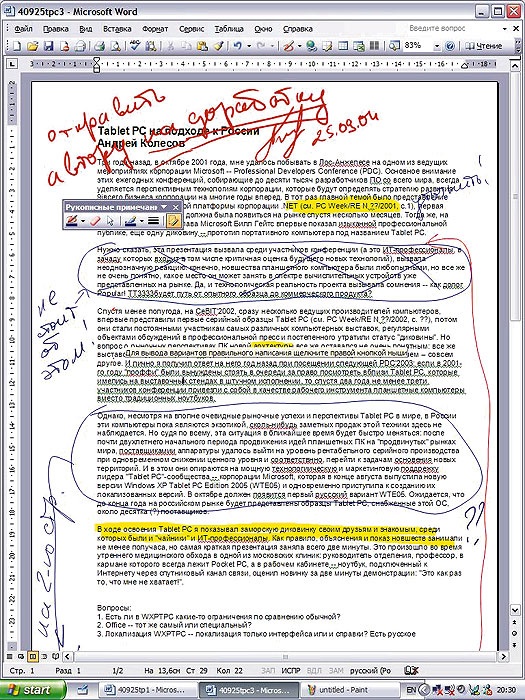 40925tpc3 - Microsoft Word
Файл Правка Вид Вставка Формат Сервис Таблица Окно Справка Введите вопрос
83% Чтение
отправить
автору на доработку
25.09.04
Tablet PC на подходе к России
Андрей Колесов
Три года назад, в октябре 2001 года, мне удалось побывать в Лос-Анжелесе на одном из ведущих
мероприятий корпорации Microsoft -- Professional Developers Conference (PDC). Основное внимание
этих ежегодный конференций, собирающие до десяти тысяч разработчиков ПО со всего мира, всегда
уделяется перспективным технологиям корпорации, которые будут определять стратегию
бизнеса корпорации на многие годы вперед. В тот раз главной темой было представление
платформы корпорации .NET (см. PC Week/RE N ??/2001, с.1),
должна была появиться на рынке спустя несколько месяцев. Тогда же, на
Microsoft Билл Гейтс впервые показал изыканной профессиональной
публике, еще одну диковину -- прототип портативного компьютера под названием Tablet PC.
Рукописные примечания
Нужно сказать, эта презентация вызвала среди участников конференции (а это ИТ-профессионалы, в
зачаду которых входит в том числе критичная оценка будущего новых технологий), вызвала
неоднозначную реакцию. конечно, новшества планшетного компьютера были любопытными, но все же
не очень понятно, какое место он может занять в спектре вычислительных устройств уже
представленных на рынке. Да, и технологическая реальность проекта вызывала сомнения -- как долог
Popular! TT3333будет путь от опытного образца до коммерческого продукта?
не
стоит
об
этом
Спустя менее полугода, на CeBIT'2002, сразу несколько ведущих производителей компьютеров,
впервые представили первые серийный образцы Tablet PC (см. PC Week/RE N ??/2002, с. ??), потом
они стали постоянными участникам самых различных компьютерных выставок, регулярными
объектами обсуждений в профессиональной прессе и постепенного утратили статус "диковины". Но
Для вывода вариантов правильного написания щелкните правой кнопкой мыши
И лично я получил ответ на него год назад при посещении следующей PDC'2003: если в 2001-
го году "проффи" были вынуждены стоять в очереди за право посмотреть вблизи Tablet PC, которые
имелись на выставочных стендах в штучном исполнении, то спустя два года не менее трети
участников конференции привезли с собой в качестве рабочего инструмента планшетные компьютеры
вместо традиционных ноутбуков.
Однако, несмотря на вполне очевидные рыночные успехи и перспективы Tablet PC в мире, в России
эти компьютеры пока являются экзотикой, сколько-нибудь заметных продаж этой техники здесь не
наблюдается. Но судя по всему, эта ситуация в ближайшее время будет быстро меняться: после
почти двухлетнего начального периода продвижения идей планшетных ПК на "продвинутых" рынках
мира, поставщикамии аппаратуры удалось выйти на уровень рентабельного серийного производства
при одновременном снижении ценового уровня и соответственно, перейти к задачам освоения новых
территорий. И в этом они опираются на мощную технологическую и маркетинговую поддержку
лидера "Tablet PC"-сообщества -- корпорации Microsoft, которая в конце августа выпустила новую
версии Windows XP Tablet PC Edition 2005 (WTE05) и одновременно приступила к созданию их
локализованных версий. В октябре должен появится первый русский вариант WTE05. Ожидается, что
до конца года на российском рынке будет представлены образцы Tablet PC, снабженные этой ОС,
около десятка (?) поставщиков.
??
В ходе освоения Tablet PC я показывал заморскую диковинку своим друзьям и знакомым, среди
которых были и "чайники" и ИТ-профессионалы. Как правило, объяснения и показ новшеств занимали
не менее получаса, но самая краткая презентация заняла всего две минуты. Это произошло во время
утреннего медицинского обхода в одной из московских клиник: руководитель отделения, профессор, в
кармане которого всегда лежит Pocket PC, а в рабочем кабинете -- ноутбук, подключенный к
Интернету через спутниковый канал связи, оценил новинку за две минуты демонстрации: "Это как раз
то, что мне не хватает!".
на 2-ю стр.
Вопросы:
1. Есть ли в WXPTPC какие-то ограничения по сравнению обычной?
2. Office -- тот же самый или специальный?
3. Локализация WXPTPC -- локализация только интерфейса или и справки? Есть русское
Стр. 1 Разд 1 1/2 На 13,6см Ст 29 Кол 22 ЗАП ИСПР ВДЛ ЗАМ русский (Ро
start 40925tp1 - Micros... 40925tpc3 - Micros... untitled - Paint EN 20:30